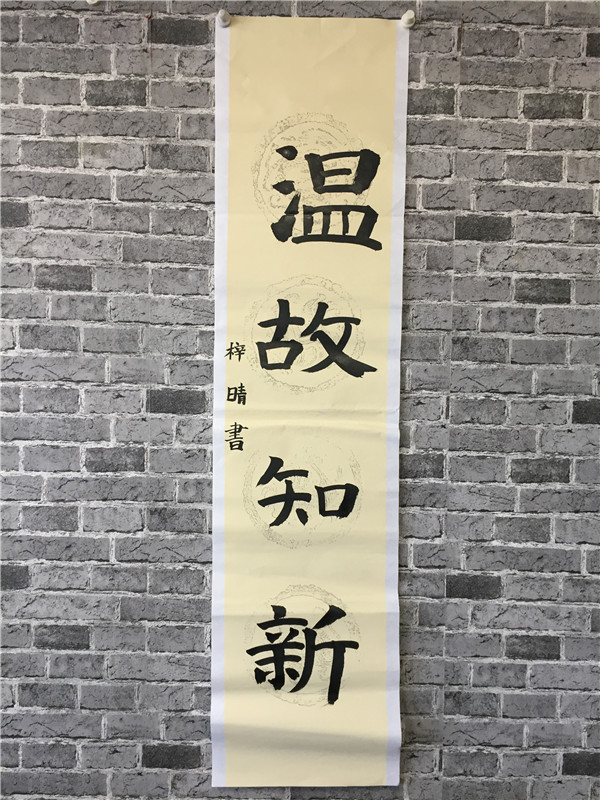 温故知新
梓晴書